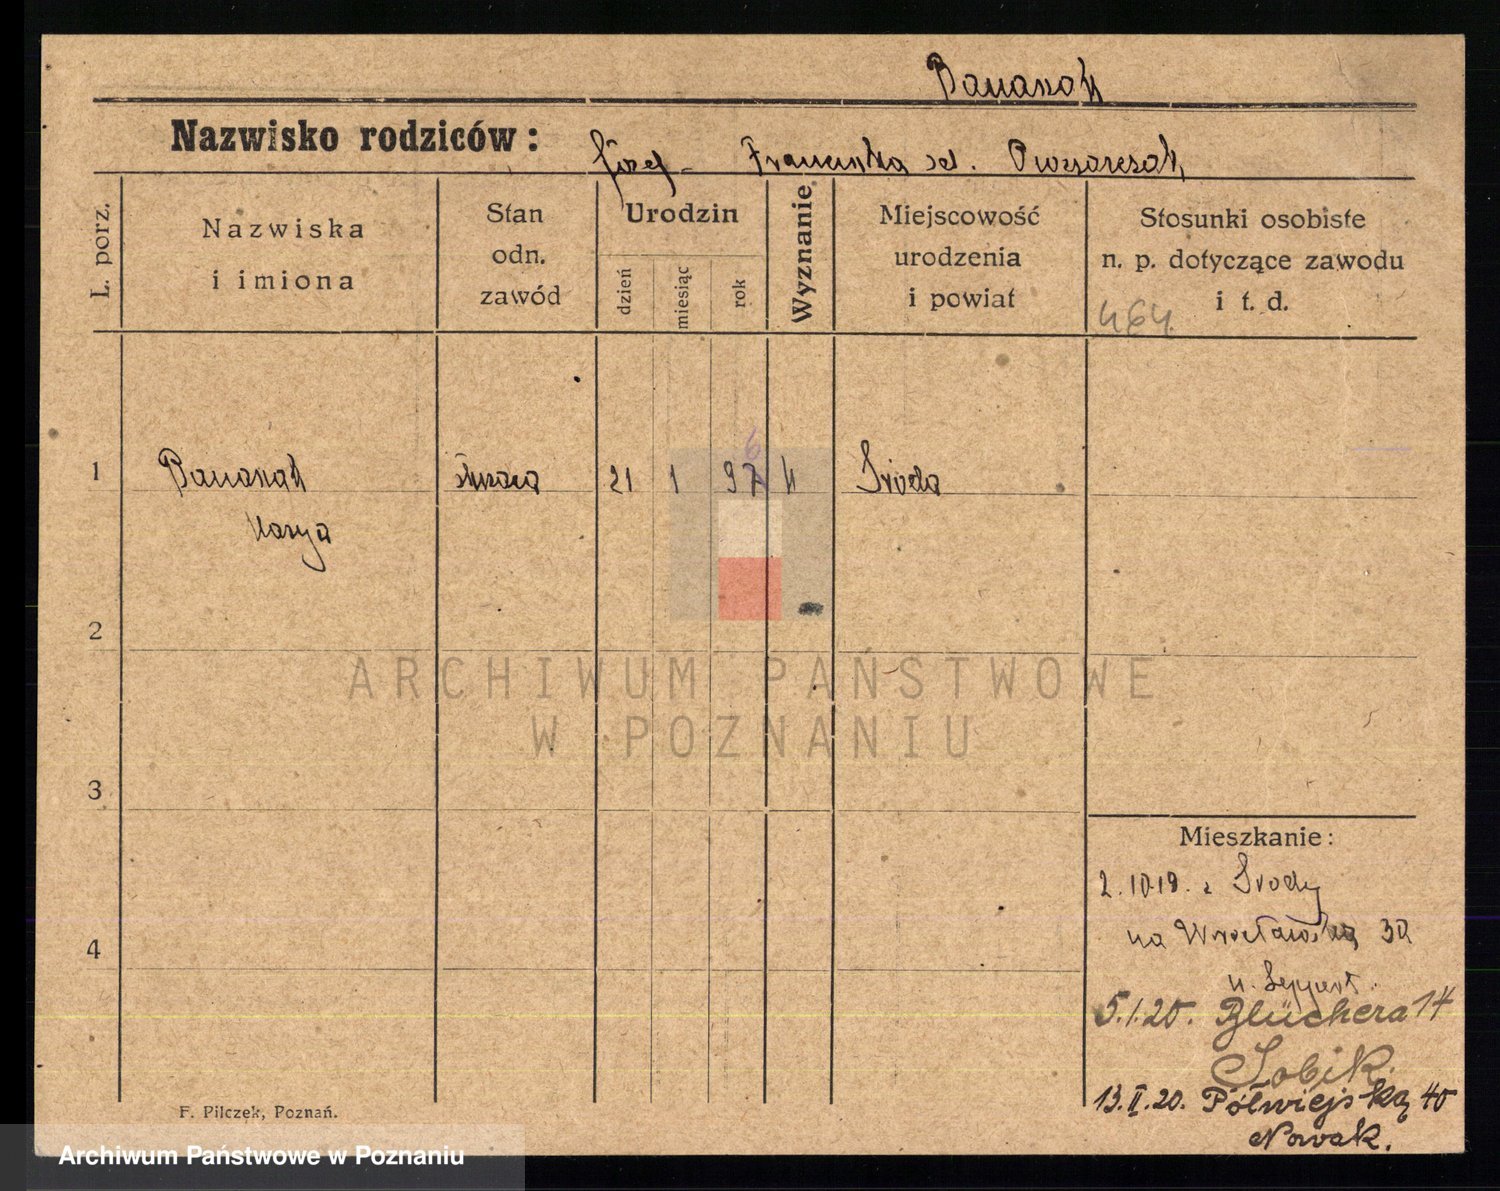 Banaszak
Nazwisko rodziców: Józef - Franciszka zd. Owczarczak
L. porz.
Nazwiska
i imiona
Stan
odn.
zawód
Urodzin
dzień
miesiąc
rok
Wyznanie
Miejscowość
urodzenia
i powiat
Stosunki osobiste
n. p. dotyczące zawodu
i t. d.
464
6
1 21 1 97 k Środa
Marya
2
3
4
Mieszkanie:
2.10.19. z Środy
na Wrocławską 30
u. Seppert.
5.1.20. Blüchera 14
Sobik.
13.II.20. Półwiejską 40
Nowak.
F. Pilczek, Poznań.
ARCHIWUM PAŃSTWOWE
W POZNANIU
Archiwum Państwowe w Poznaniu